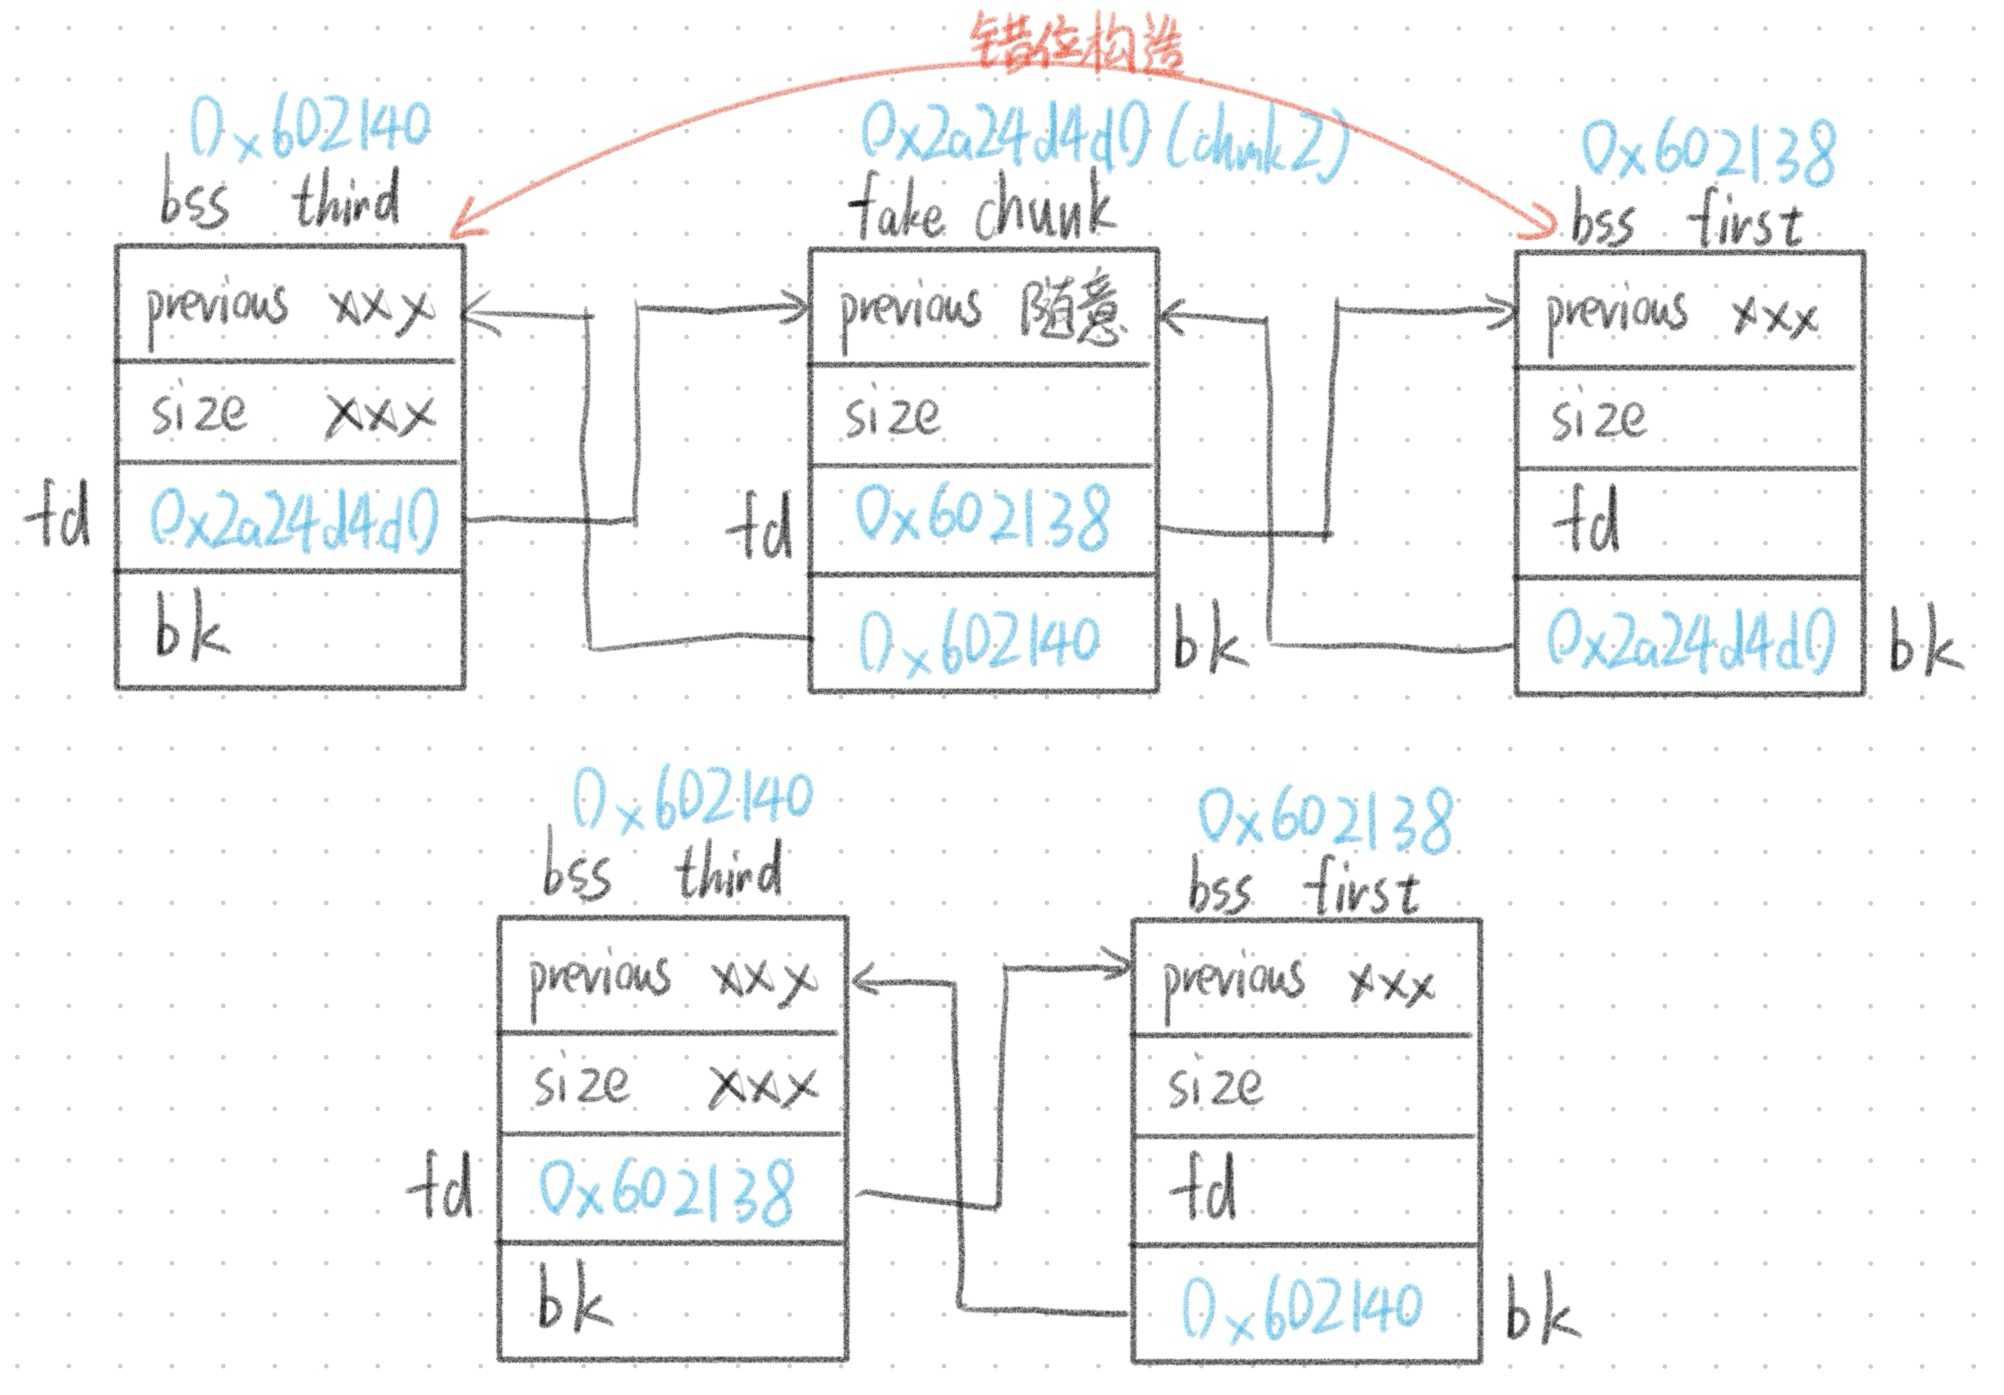 错位构造
0x602140
bss third
previous xxx
size xxx
fd 0x2a24d4d0
bk
0x2a24d4d0 (chunk2)
fake chunk
previous 随意
size
fd 0x602138
0x602140 bk
0x602138
bss first
previous xxx
size
fd
0x2a24d4d0 bk
0x602140
bss third
previous xxx
size xxx
fd 0x602138
bk
0x602138
bss first
previous xxx
size
fd
0x602140 bk